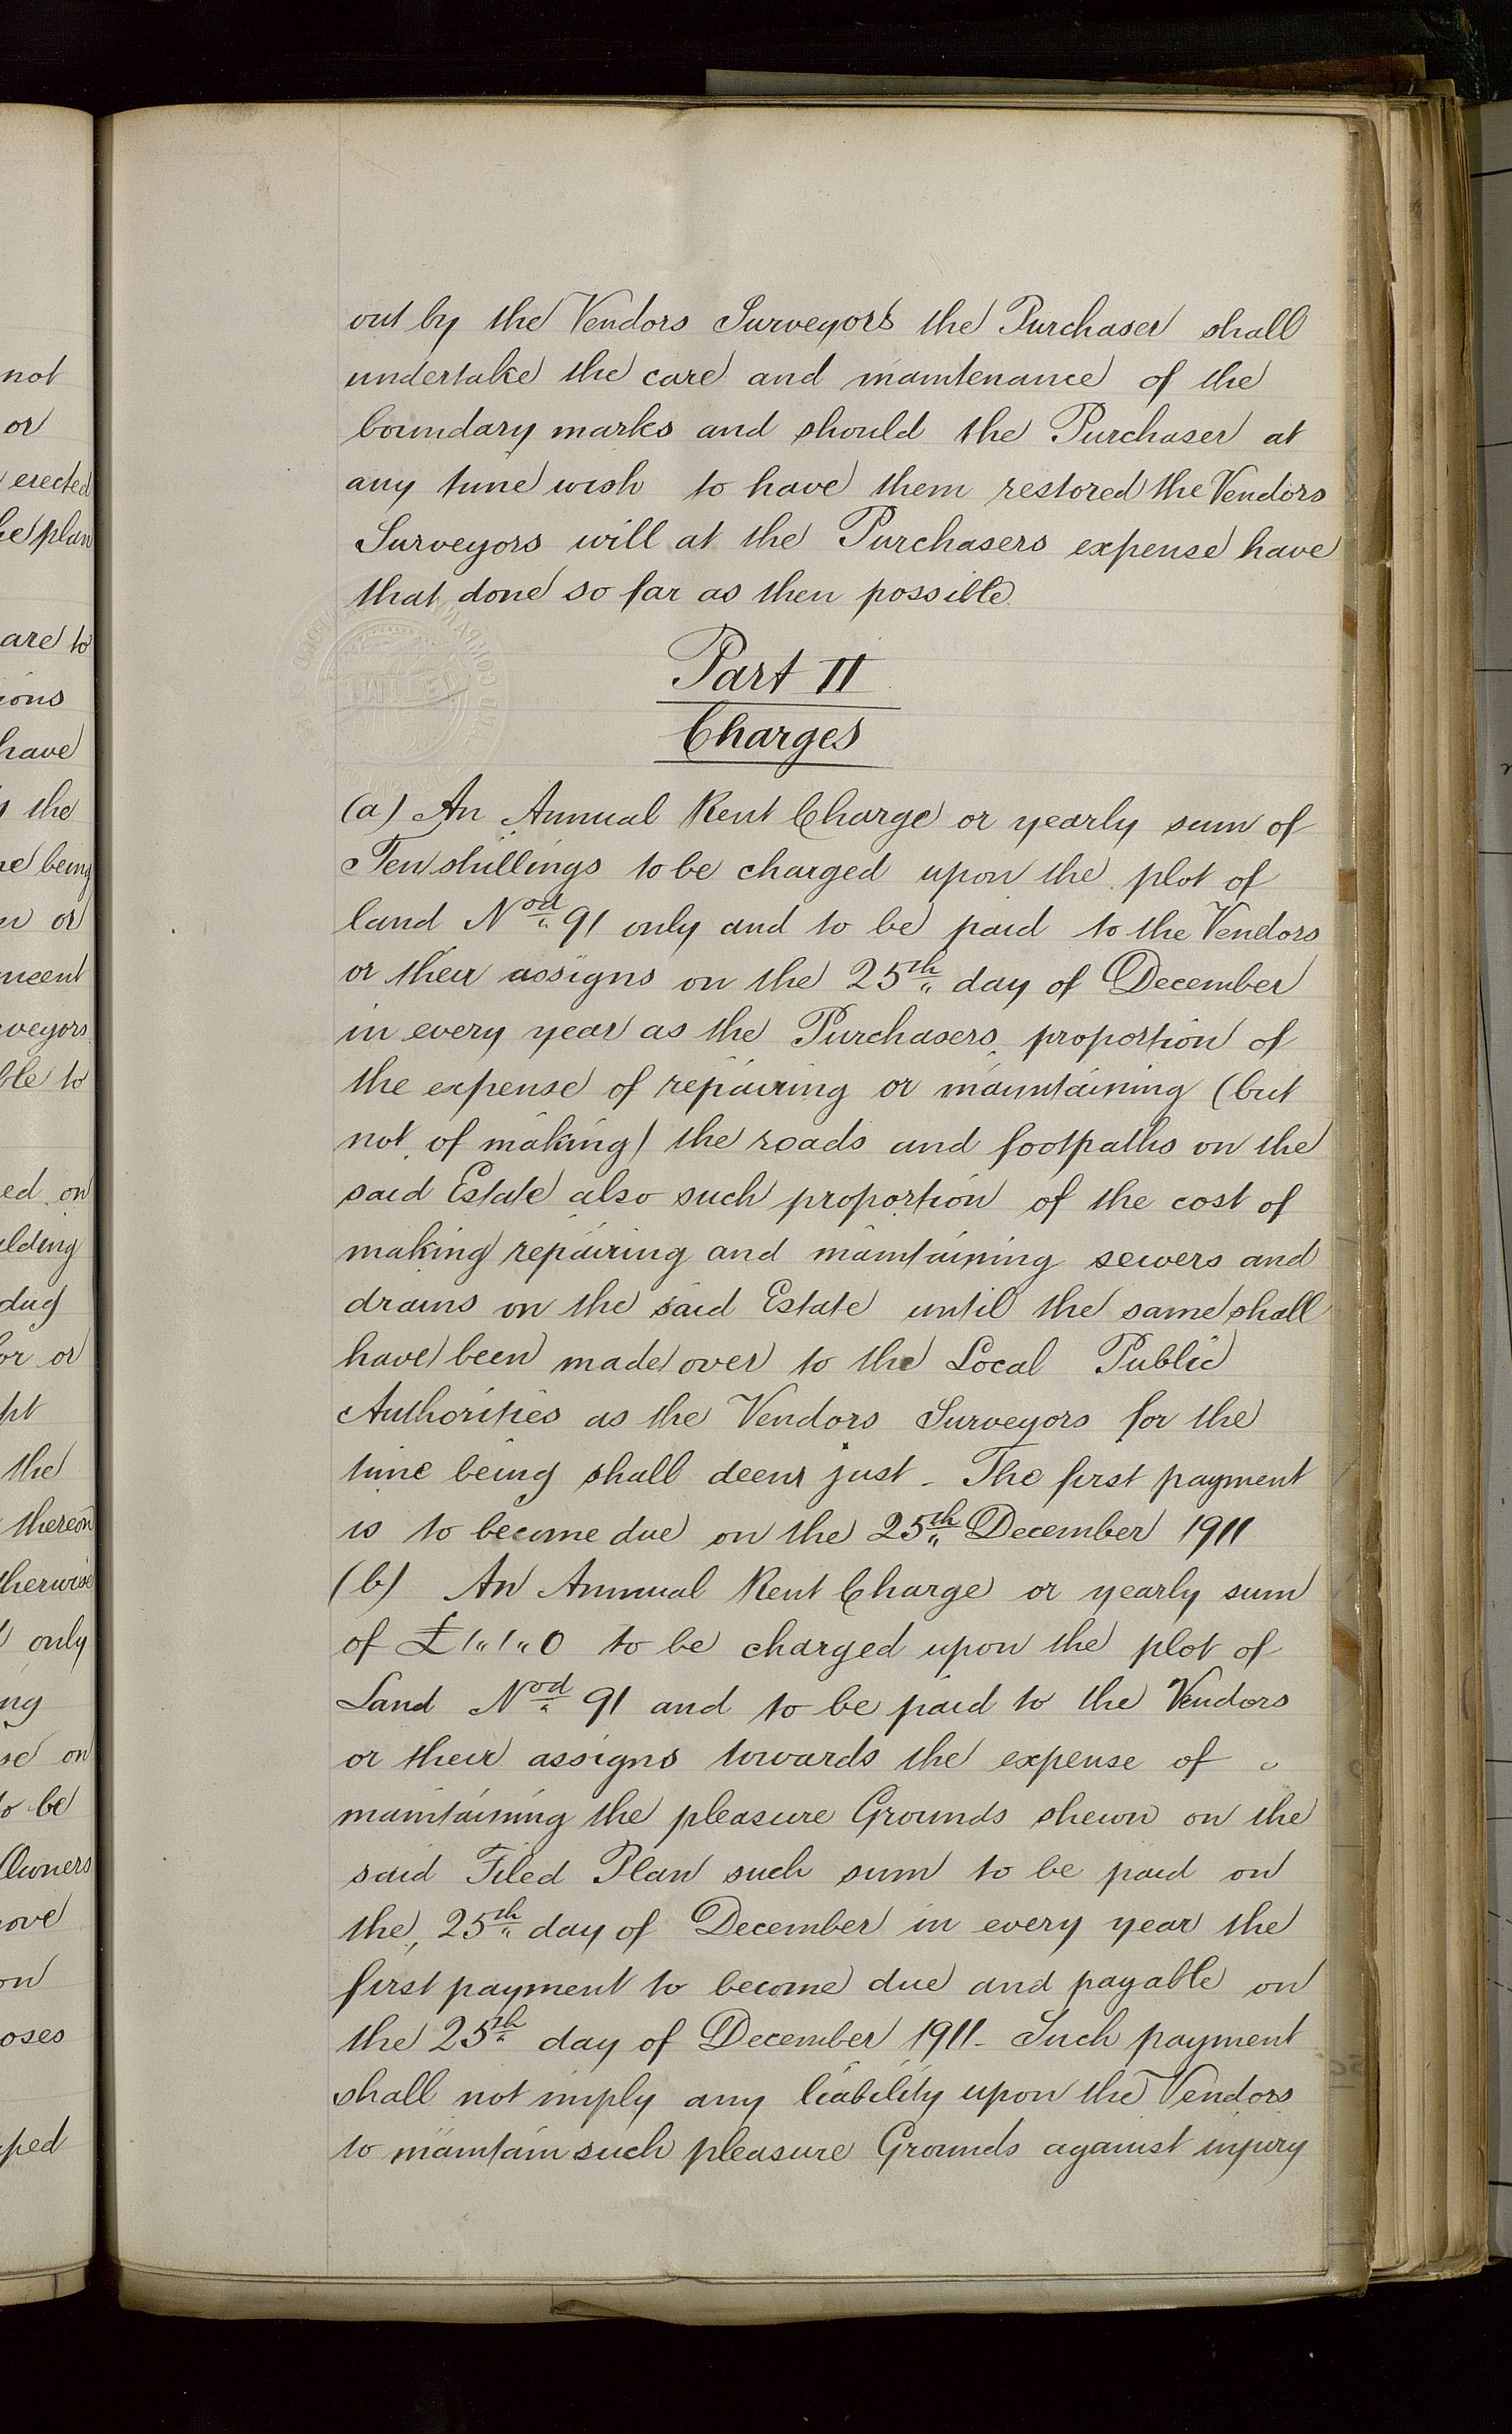 out by the Vendors Surveyors the Purchaser shall
undertake the care and maintenance of the
boundary marks and should the Purchaser at
any time wish to have them restored the Vendors
Surveyors will at the Purchasers expense have
that done so far as then possible
Part II
Charges
(a) An Annual Rent Charge or yearly sum of
Ten shillings to be charged upon the plot of
land Nod 91 only and to be paid to the Vendors
or their assigns on the 25th day of December
in every year as the Purchasers proportion of
the expense of repairing or maintaining (but
not of making) the roads and footpaths on the
said Estate also such proportion of the cost of
making repairing and maintaining sewers and
drains on the said Estate until the same shall
have been made over to the Local Public
Authorities as the Vendors Surveyors for the
time being shall deem just - The first payment
is to become due on the 25th December 1911
(b) An Annual Rent Charge or yearly sum
of £1"1"0 to be charged upon the plot of
Land Nod 91 and to be paid to the Vendors
or their assigns towards the expense of
maintaining the pleasure Grounds shewn on the
said Filed Plan such sum to be paid on
the 25th day of December in every year the
first payment to become due and payable on
the 25th day of December 1911 - Such payment
shall not imply any liability upon the Vendors
to maintain such pleasure Grounds against injury
not
or
erected
plan
are to
have
the
being
or
to
on
or
the
thereon
only
on
to be
Owners
LIMITED